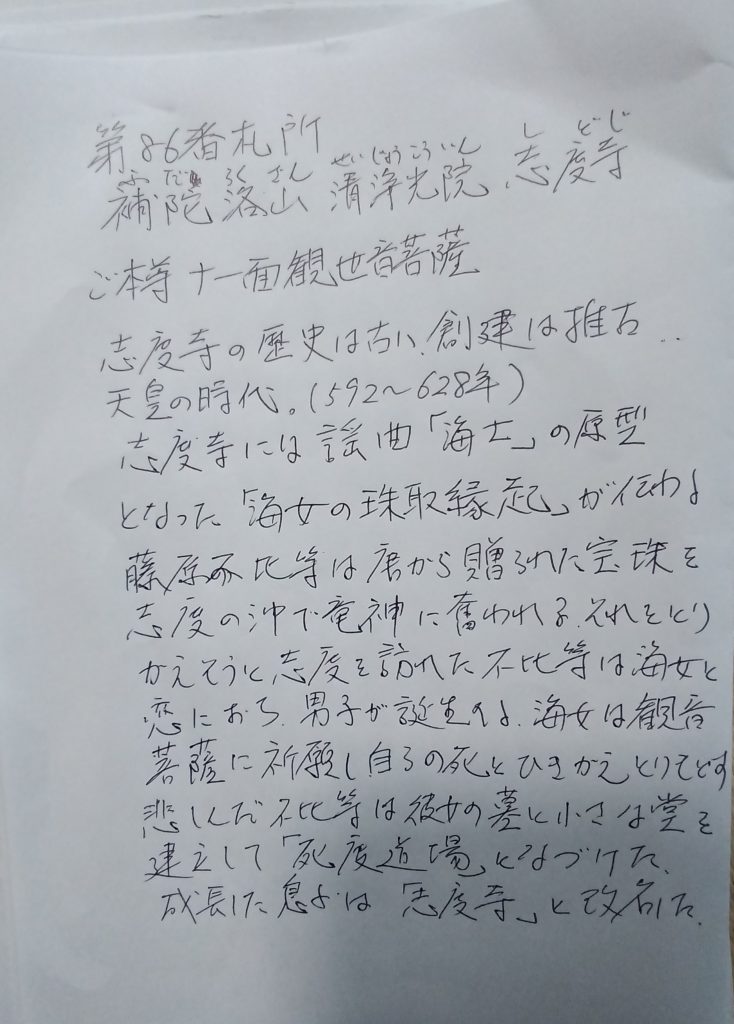 第86番札所
ふだらくさん せいじょうこういん しどじ
補陀洛山 清浄光院 志度寺
ご本尊 十一面観世音菩薩
志度寺の歴史は古い、創建は推古
天皇の時代。(592～628年)
志度寺には謡曲「海士」の原型
となった「海女の珠取縁起」が伝わる
藤原不比等は唐から贈られた宝珠を
志度の沖で竜神に奪われる、それをとり
かえそうと志度を訪れた不比等は海女と
恋におち、男子が誕生する、海女は観音
菩薩に祈願し自らの死とひきかえとりもどす
悲しんだ不比等は彼女の墓と小さな堂を
建立して「死度道場」となづけた、
成長した息子は「志度寺」と改名した、